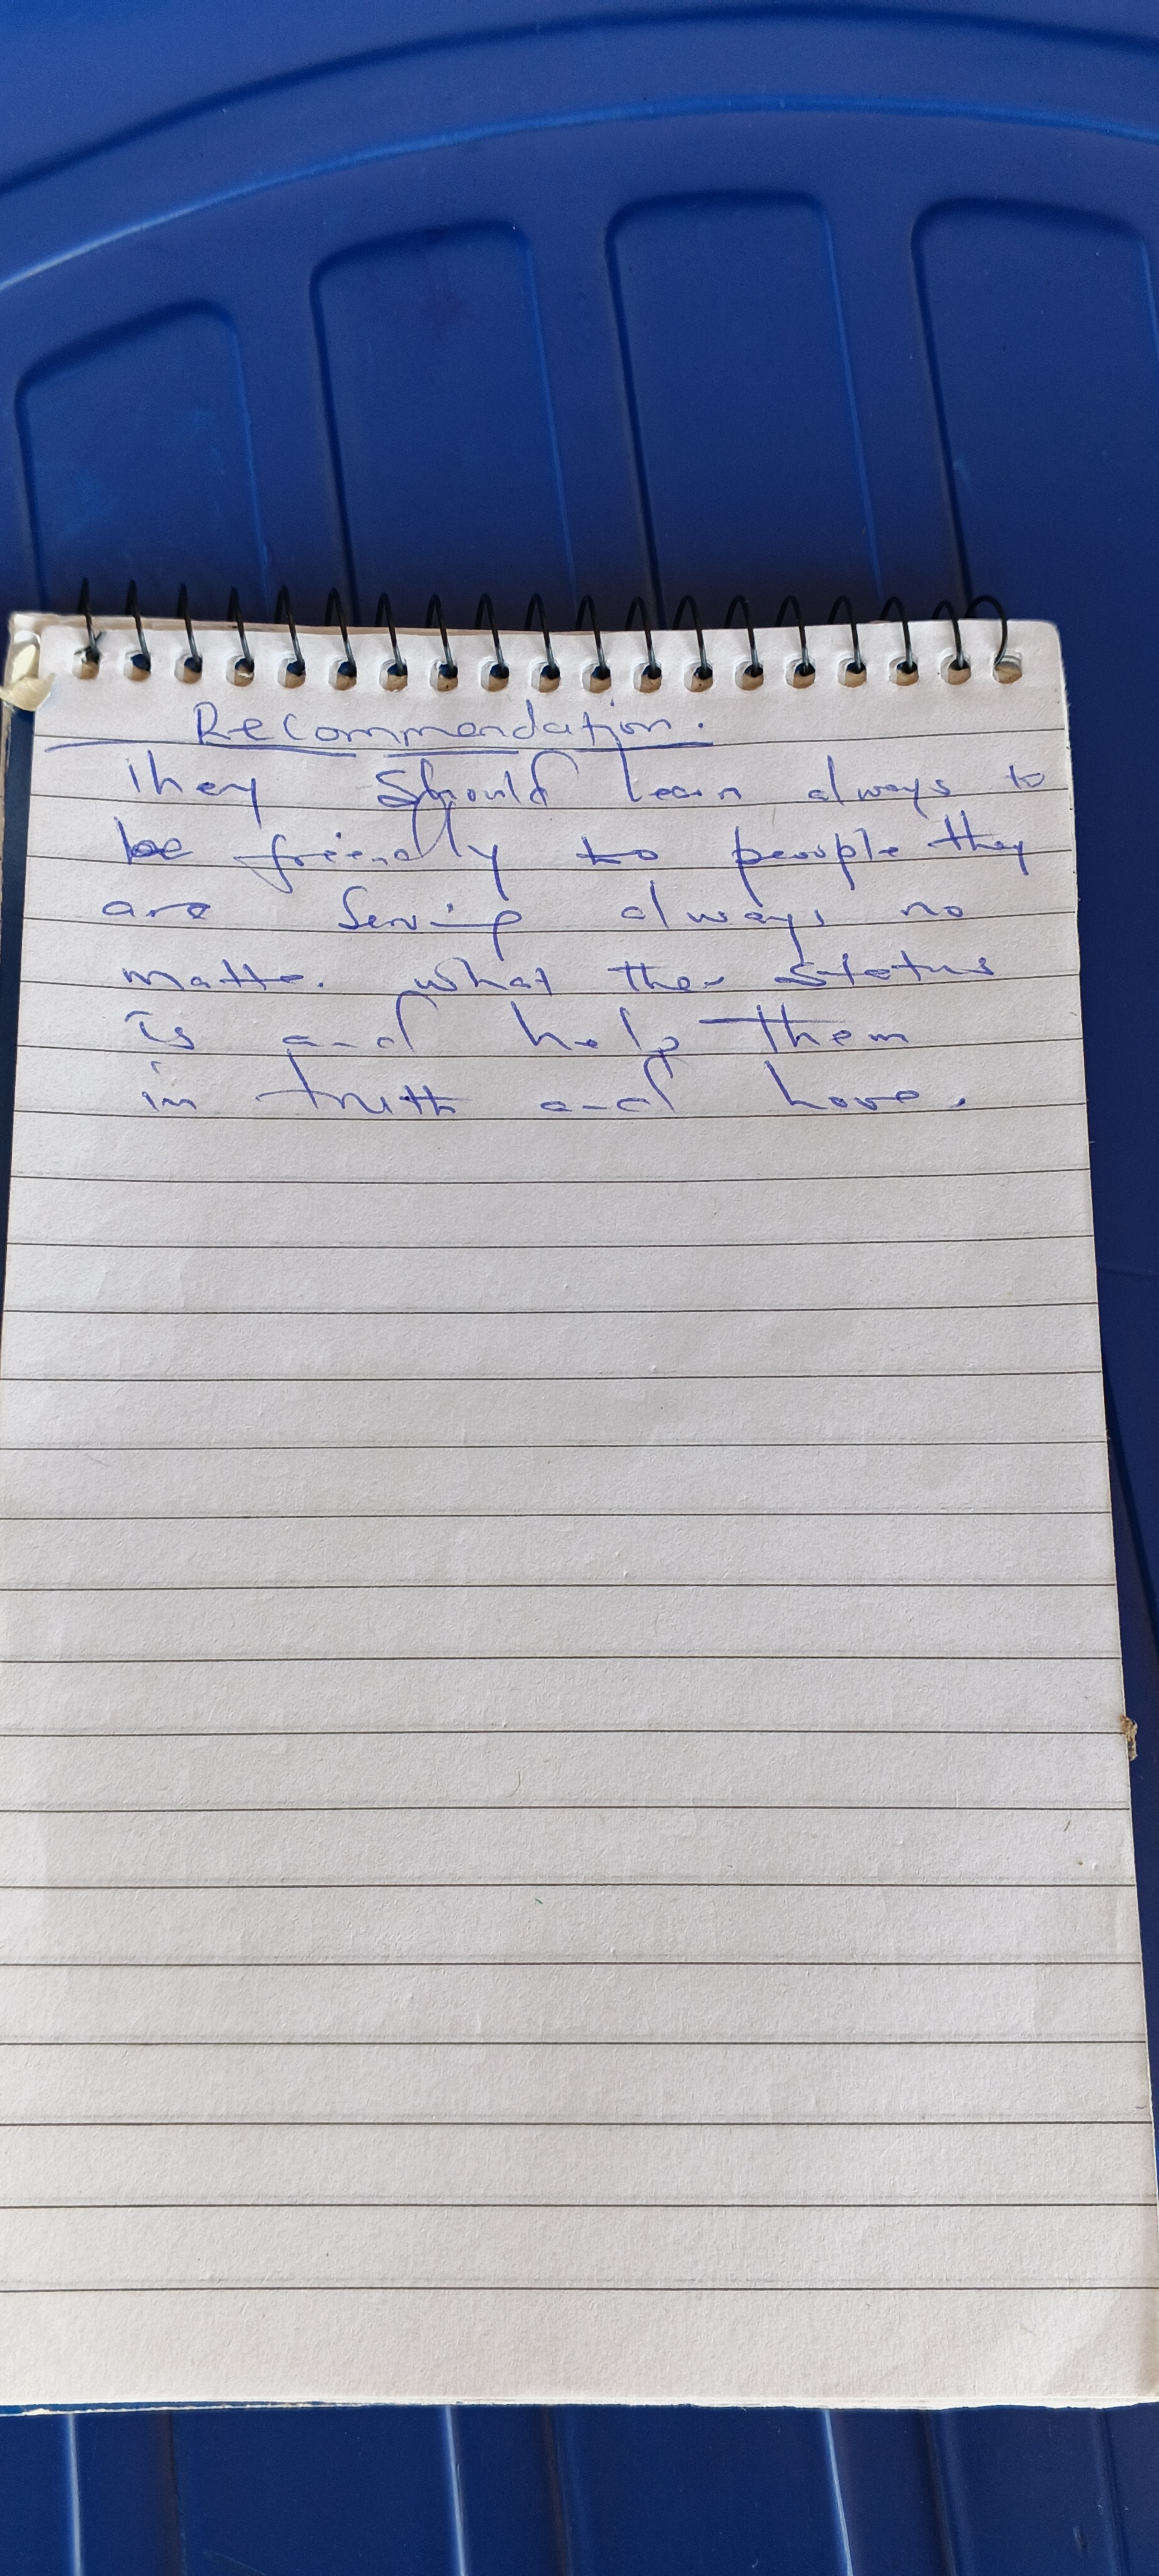 Recommendation.
They should learn always to
be friendly to people they
are serving always no
matter what the status
is and help them
in truth and love.